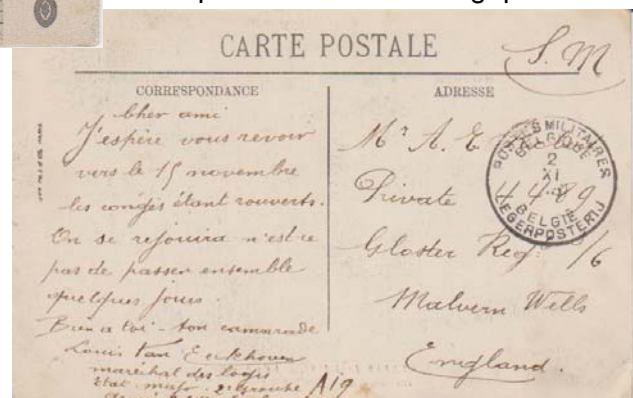 CARTE POSTALE
S.M
CORRESPONDANCE
ADRESSE
Cher ami
J'espère vous revoir
vers le 15 novembre
les congés étant rouverts.
On se rejouira n'est-ce
pas de passer ensemble
quelques jours.
Bien a toi - ton camarade
Louis Van Eeckhoven
maréchal des logis
Etat-major
A19
Mr A. E.
Private 4489
Gloster Reg: /6
Malvern Wells
England.
POSTES MILITAIRES
BELGIQUE
2
XI
BELGIE
LEGERPOSTERIJ